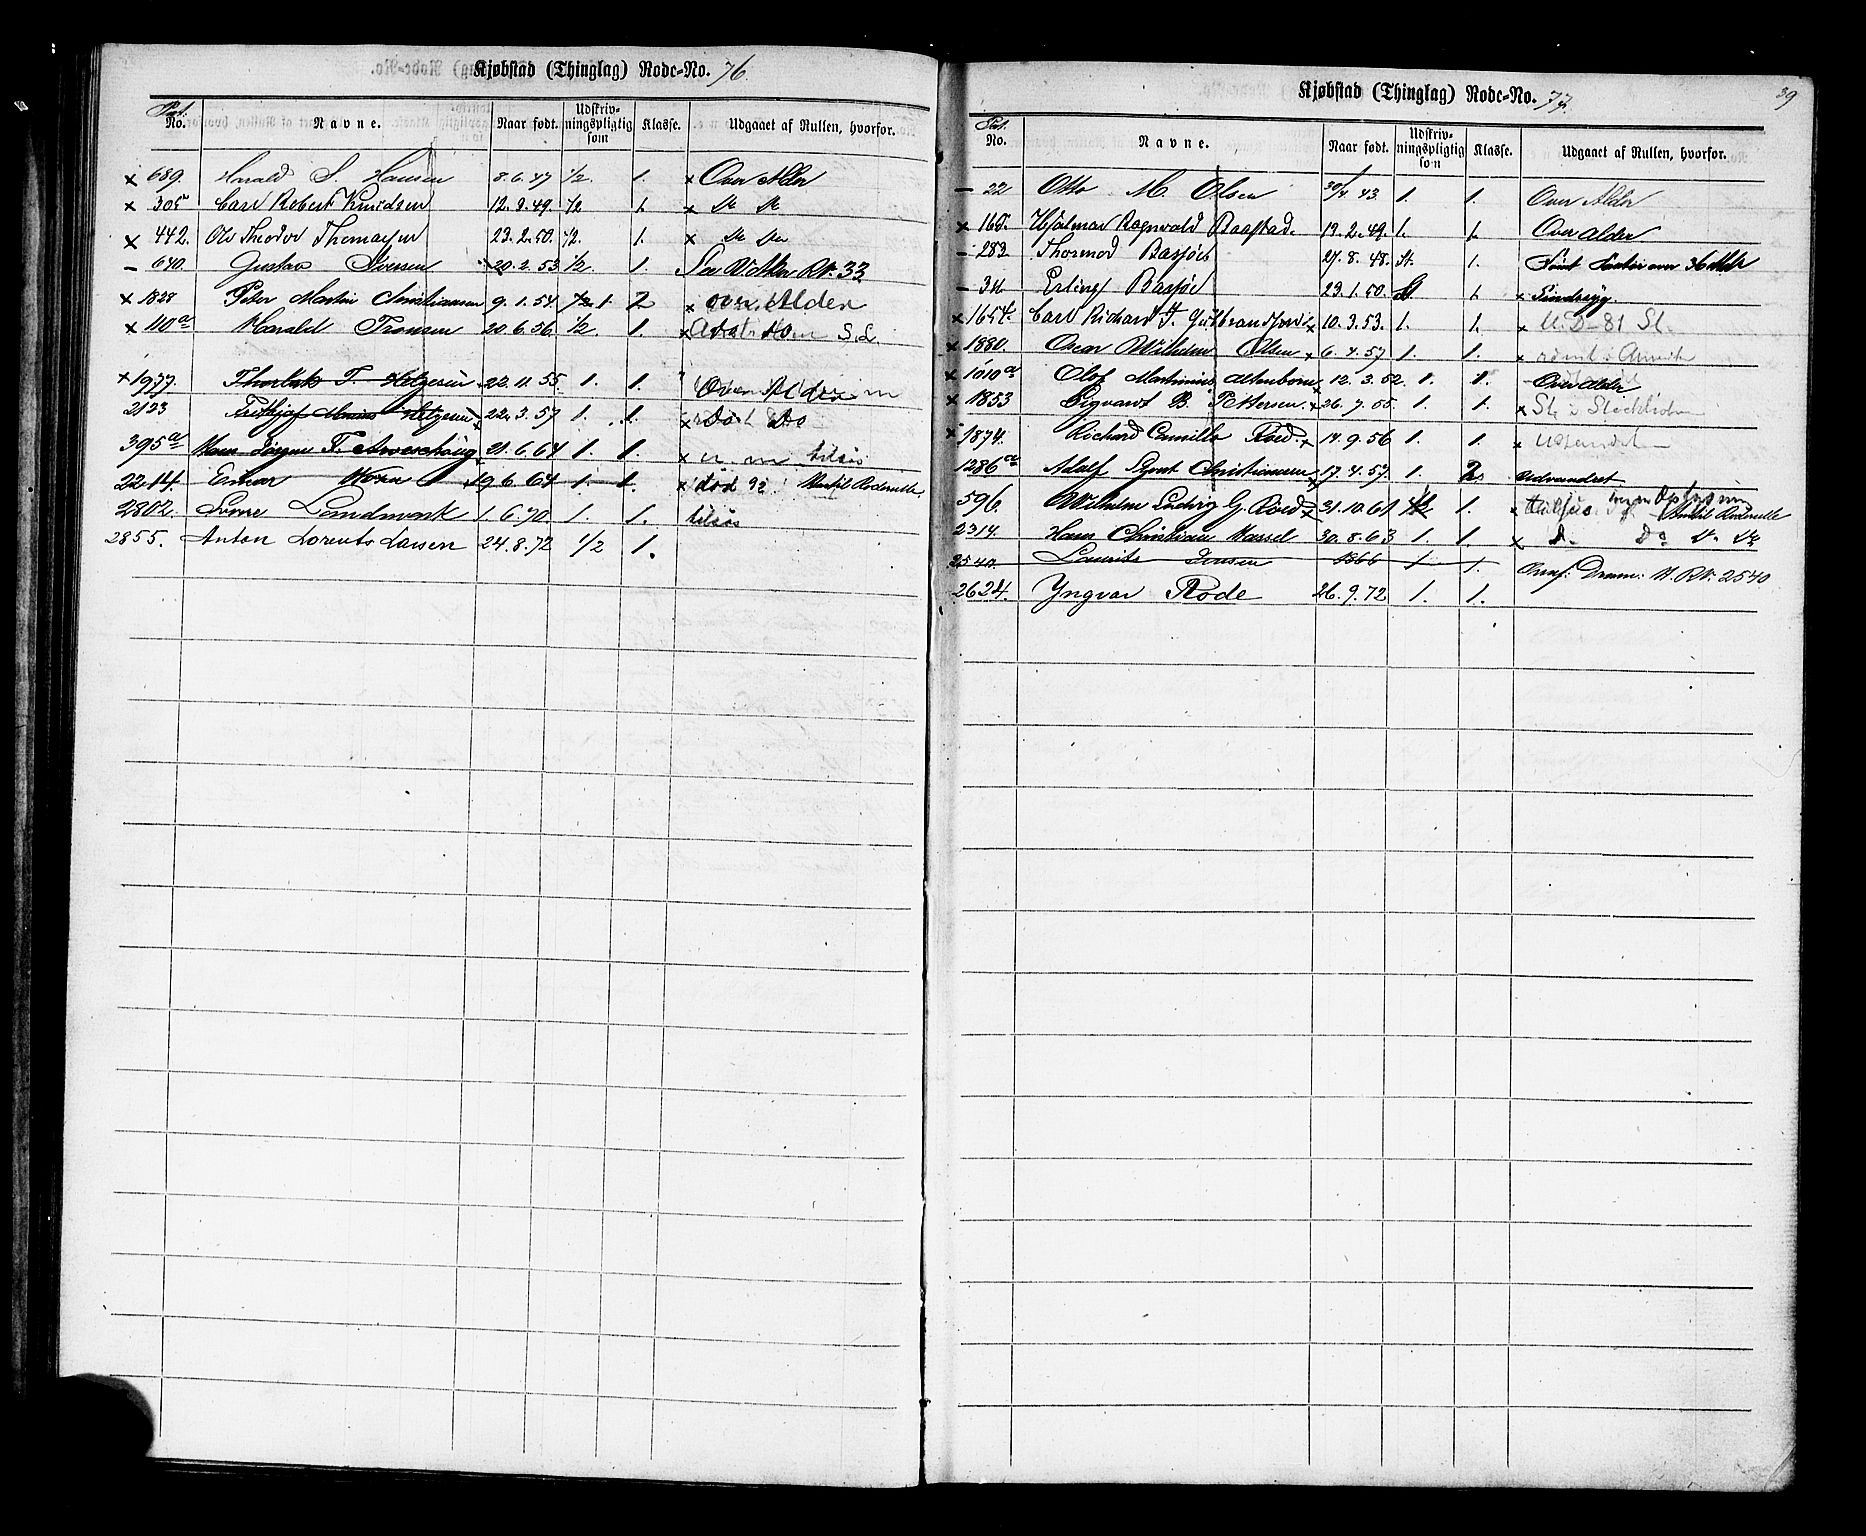 Kjøbstad (Thinglag) Rode-No. 76
Pat. No. Navne. Naar født. Udskriv-ningspligtig som Klasse. Udgaaet af Rullen, hvorfor.
x 689. Harald S. Hansen 8.6.47 1/2 1. x Over Alder
x 305 Carl Robert Knudsen 12.9.49. 1/2 1. x Do Do
x 442. Olv Theodor Themayer 23.2.50. 1/2. 1. x Do Do
– 640. Gustav Iversen 20.2.53 1/2 1. Søe Rt. 33
x 1828 Peter Martin Christiansen 9.1.54 1/2 1. 2 x over Alder
x 110a Harald Tronsen 20.6.56. 1/2 1. x Do
x 1977. Thorleif T. Helgesen 22.11.55. 1. 1. Over Alder
2123 Frithjof Helgesen 22.3.57 1. 1. x Do Do
395a Hans Jørgen F. 21.6.64 1. 1. x tilsøs
2214. Einar 19.6.64 1. 1. x død 92. Roderulle
2802. Sverre Landmark 1.6.70 1. 1. tilsøs
2855. Anton Lorents Larsen 24.8.72 1/2 1.
39
Kjøbstad (Thinglag) Rode-No. 77.
Pat. No. Navne. Naar født. Udskriv-ningspligtig som Klasse. Udgaaet af Rullen, hvorfor.
– 22 Otto M. Olsen 30/4 43. 1. 1. Over Alder
x 165. Hjalmar Ragnvald Baastad. 19.2.49. 1. 1. Over alder
– 283 Thormod Bassøe 27.8.48. 1.
– 311 Erling Bassøe 23.1.50. 1. x Sindssyg.
x 1654. Carl Richard T. Gulbrandsen x 10.3.53. 1. 1. x U.D–81 St.
x 1880. Oscar Wilhelm Olsen x 6.4.57 1. 1. x rømt i Amerika
x 1010a Olof Martinius Altenborn 12.3.52. 1. 1. Over Alder
x 1853 Sigvardt B. Pettersen. x 26.7.55. 1. 1. x St. i Stockholm
x 1874. Richard Camillo Roed. x 14.9.56 1. 1. x
1286a Adolf Christiansen 17.4.57. 1. 2. Udvandret
596. Wilhelm Ludvig G. Roed x 31.10.61 1/2 1. x Roderulle
2314. Hans Christian Wassel 30.8.63 1. 1. x Do Do Do
2540. Laurits Jensen 1866 1. 1. Overf: Dram: H. Rt. 2540
2624. Yngvar Rode 26.9.72 1. 1.